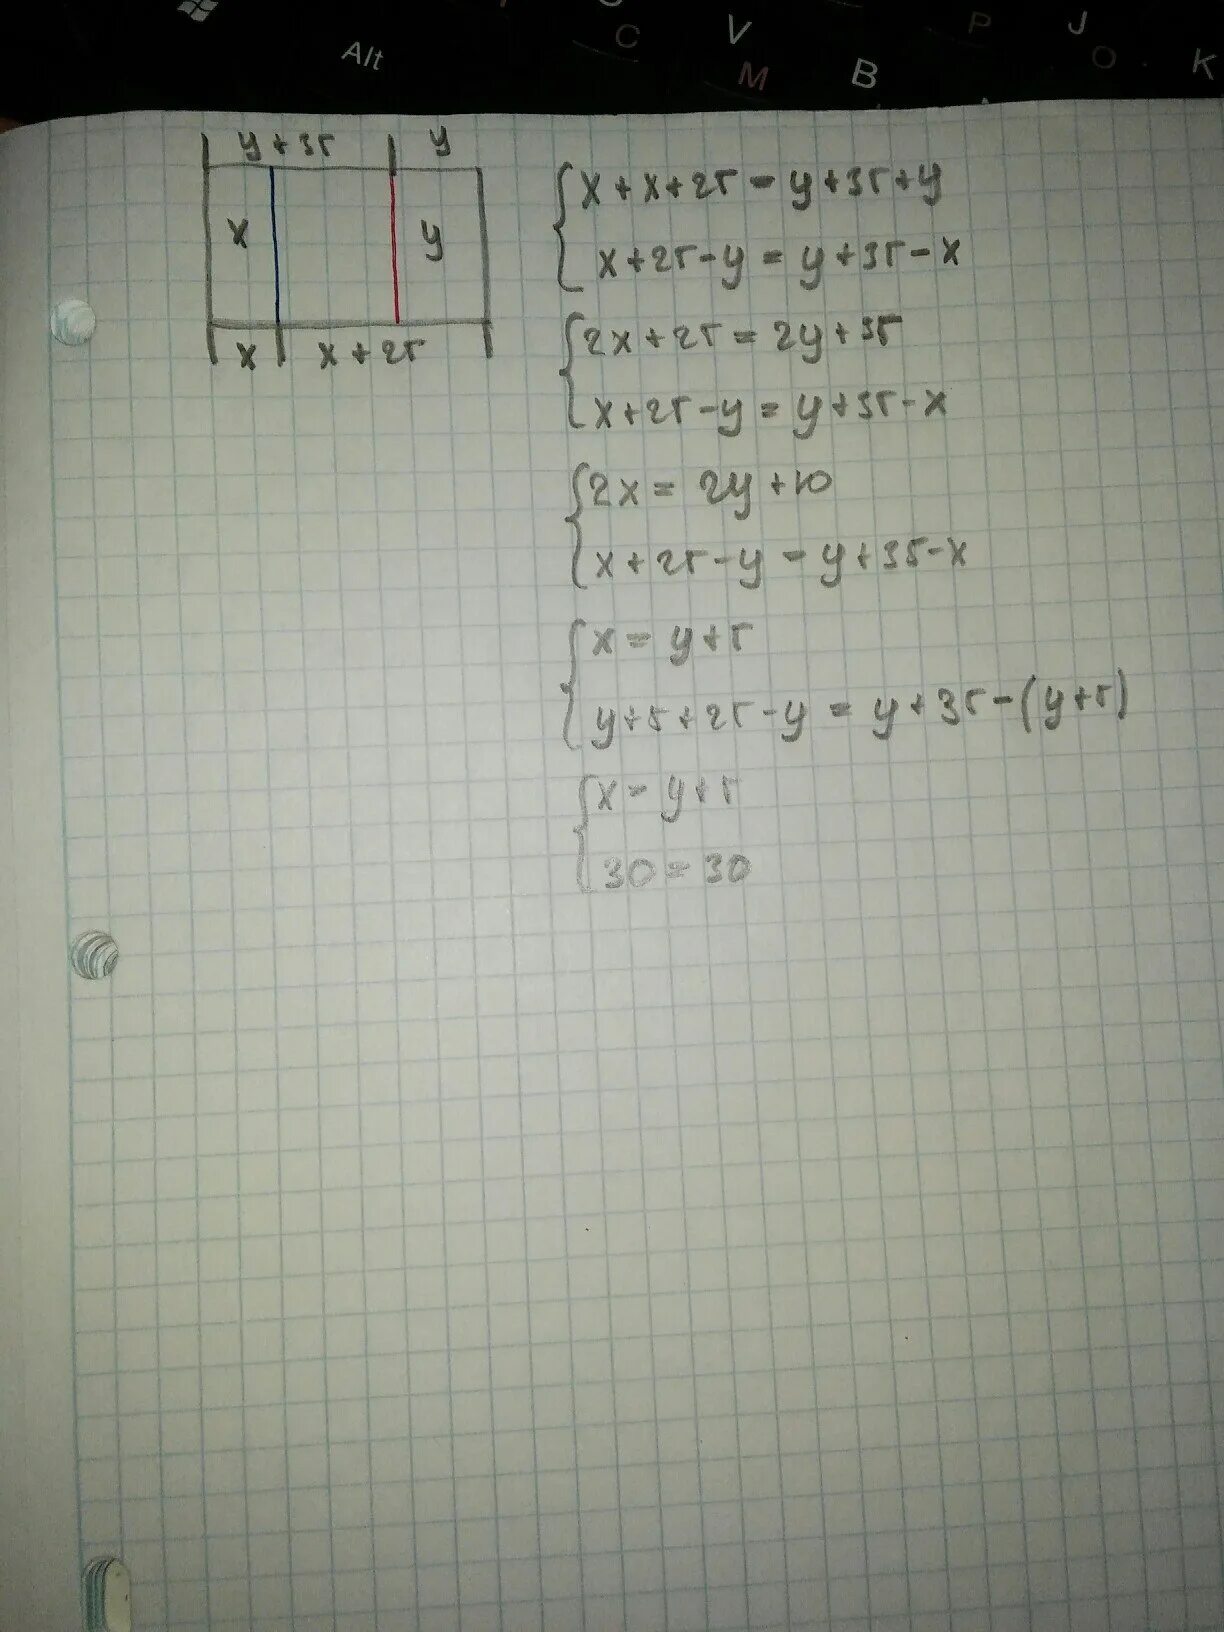 Alt
C
V
M
B
P
J
O
K
y + 35 y
x y
x x + 25
x + x + 25 = y + 35 + y
x + 25 - y = y + 35 - x
2x + 25 = 2y + 35
x + 25 - y = y + 35 - x
2x = 2y + 10
x + 25 - y = y + 35 - x
x = y + 5
y + 5 + 25 - y = y + 35 - (y + 5)
x = y + 5
30 = 30